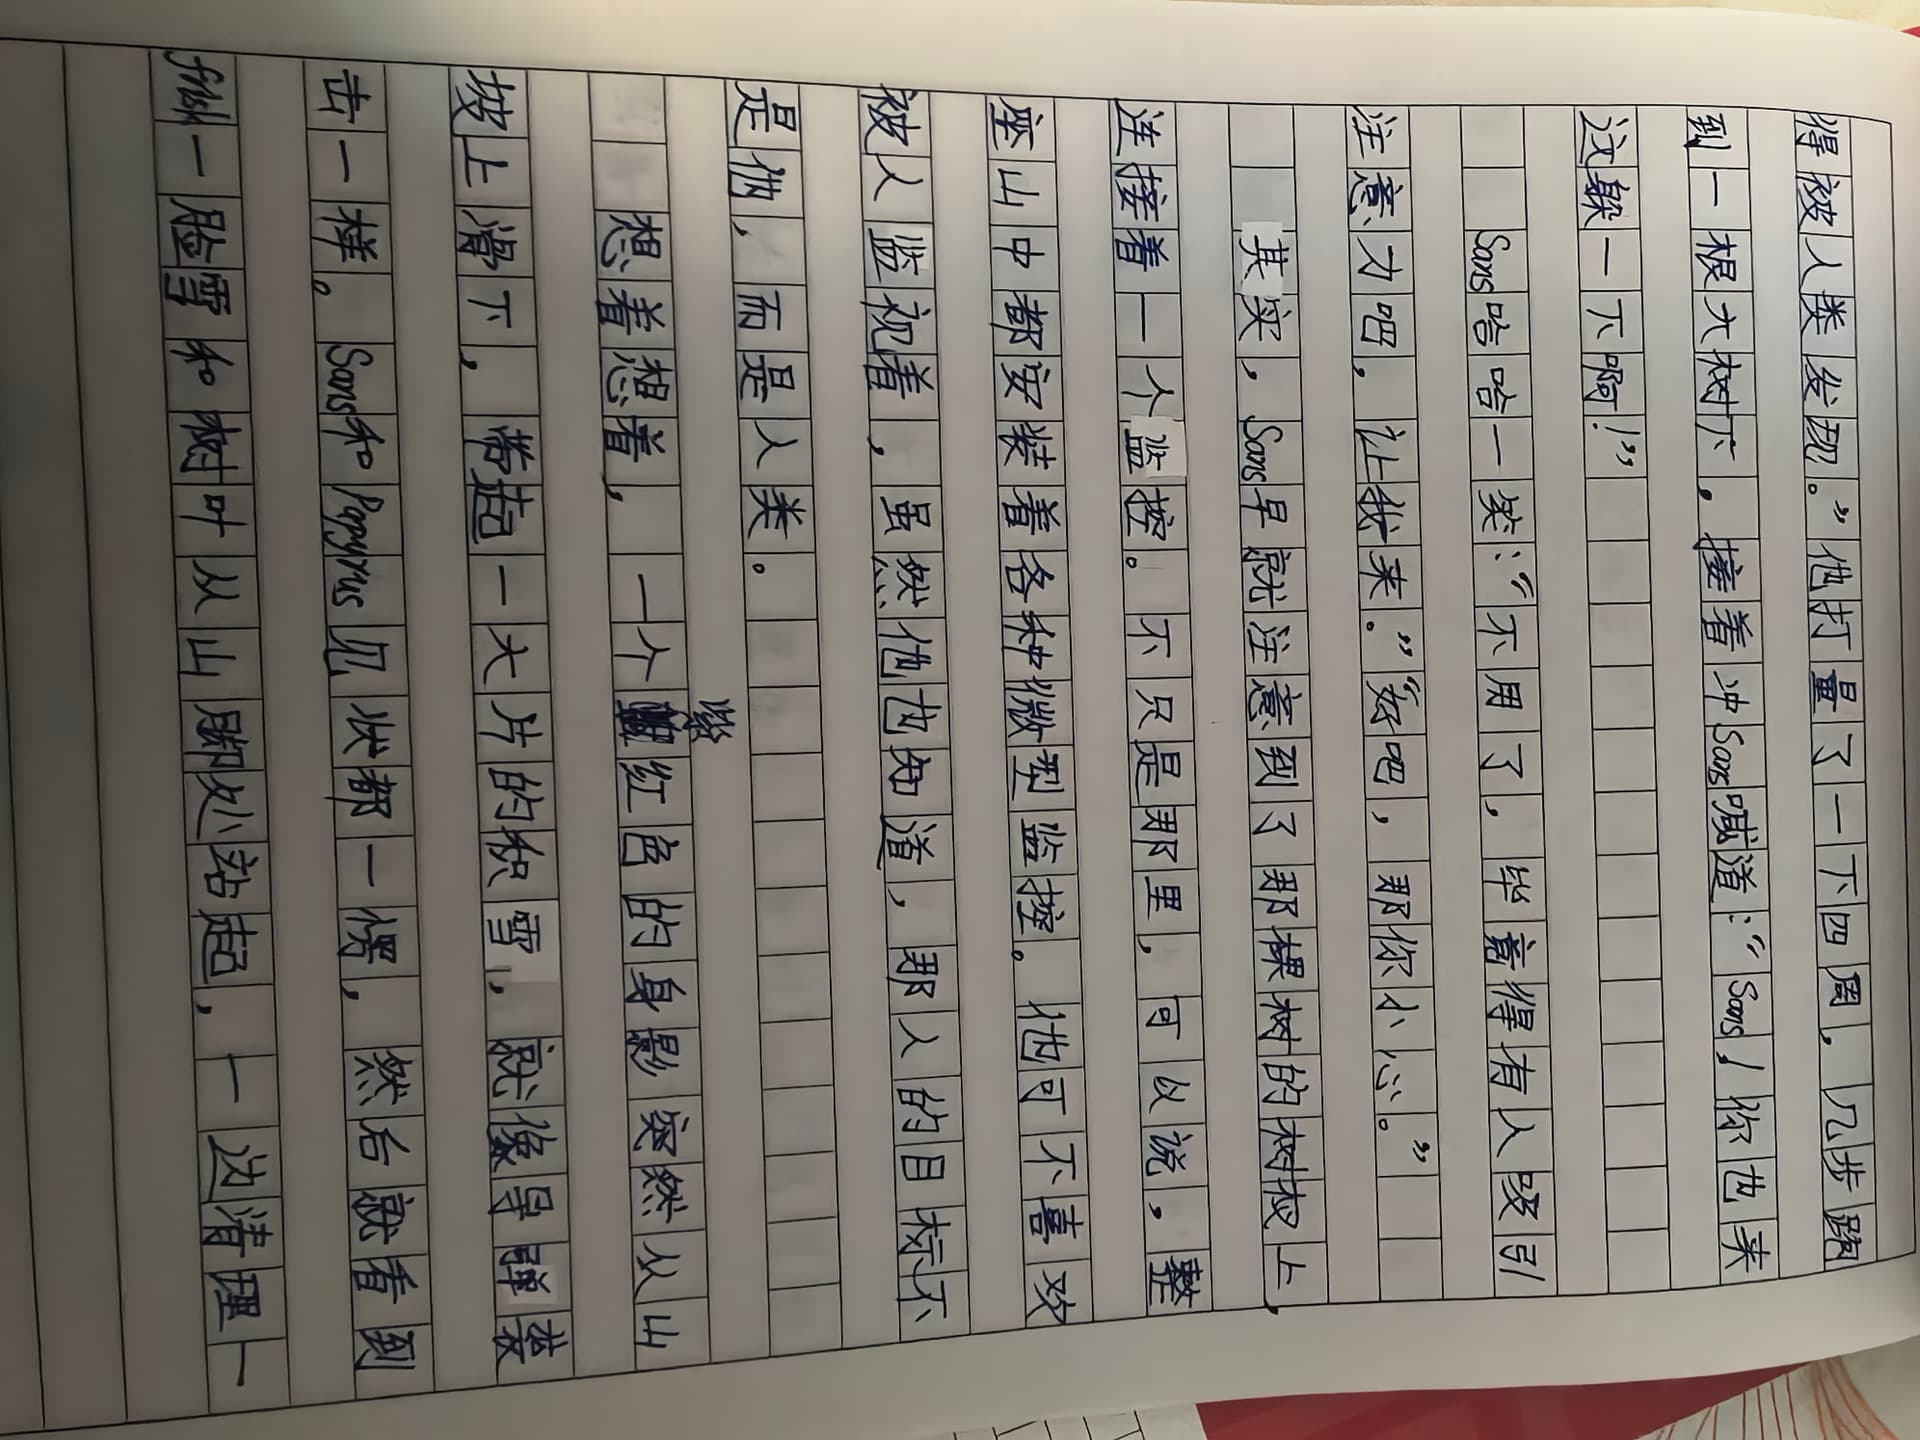 得被人类发现。”他打量了一下四周，几步跑
到一根大树下，接着冲Sans喊道：“Sans，你也来
这躲一下啊！”
Sans哈哈一笑：“不用了，毕竟得有人吸引
注意力吧，让我来。”“好吧，那你小心。”
其实，Sans早就注意到了那棵树的树杈上，
连接着一个监控。不只是那里，可以说，整
座山中都安装着各种微型监控。他可不喜欢
被人监视着，虽然他也知道，那人的目标不
是他，而是人类。
想着想着，一个紫红色的身影突然从山
坡上滑下，带起一大片的积雪，就像导弹袭
击一样。Sans和Papyrus见状都一愣，然后就看到
frisk一脸雪和树叶从山脚处站起，一边清理一